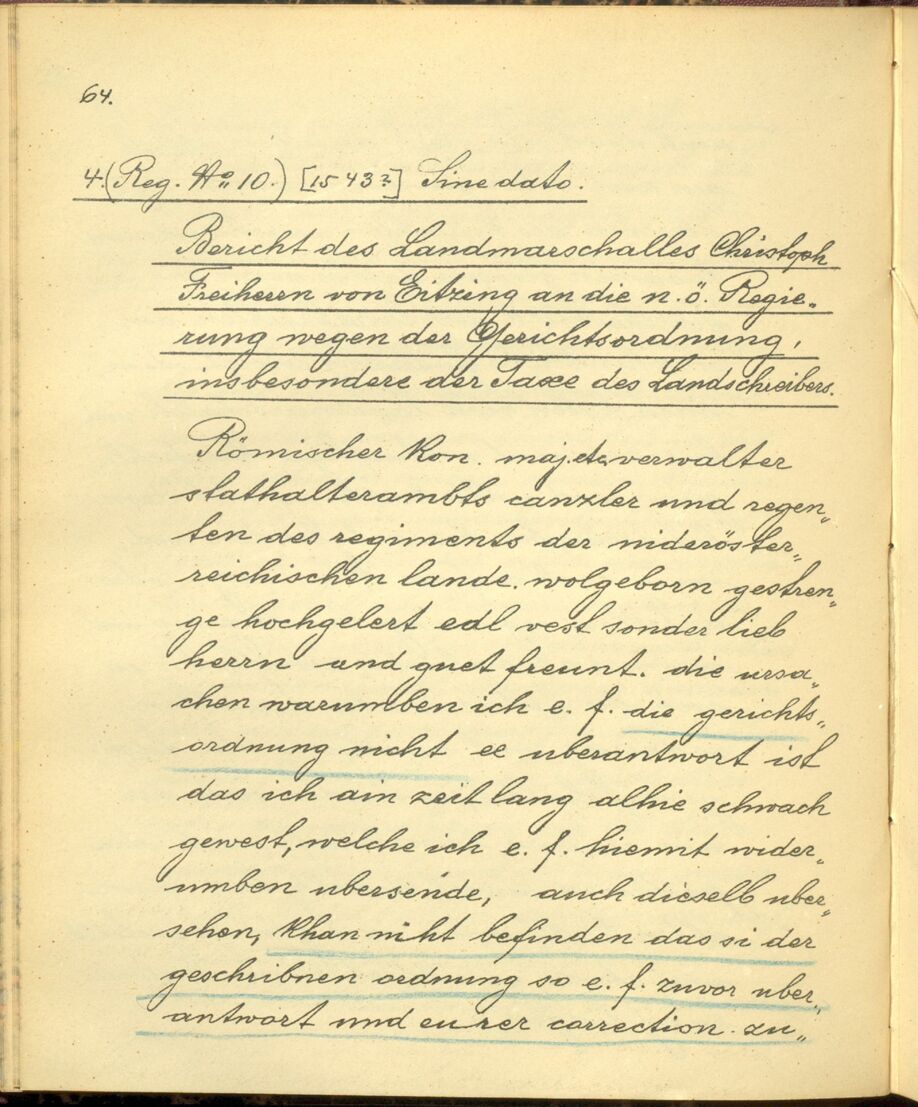 64.
4.(Reg. No 10.) [1543?] Sine dato.
Bericht des Landmarschalles Christoph
Freiherrn von Eitzing an die n.ö. Regie„
rung wegen der Gerichtsordnung,
insbesondere der Taxe des Landschreibers.
Römischer kön. maj. etc verwalter
stathalterambts canzler und regen„
ten des regiments der nideröster„
reichischen lande. wolgeborn gestren„
ge hochgelert edl vest sonder lieb
herrn und guet freunt. die ursa„
chen warumben ich e. f. die gerichts„
ordnung nicht ee uberantwort ist
das ich ain zeit lang alhie schwach
gewest, welche ich e. f. hiemit wider„
umben ubersende, auch dieselb uber„
sehen, khan niht befinden das si der
geschribnen ordnung so e. f. zuvor uber„
antwort und eurer correction zu„